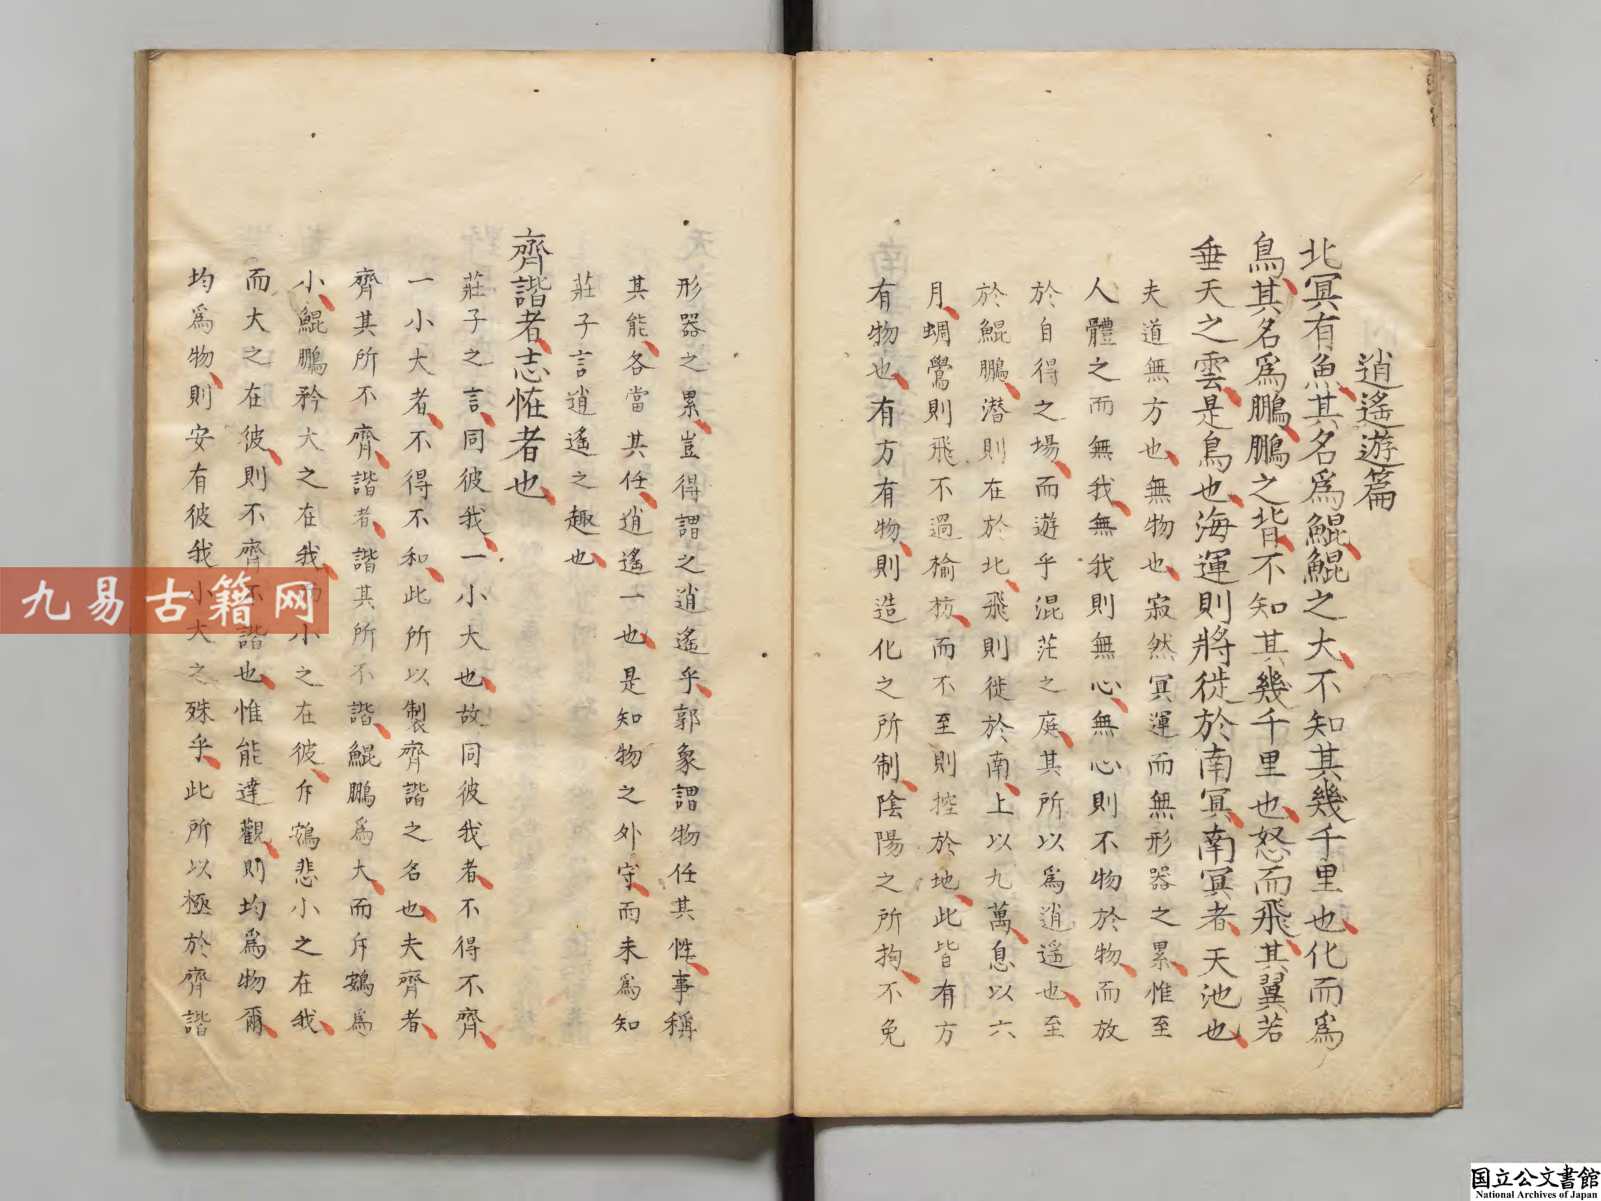 逍遙遊篇
北冥有魚其名爲鯤鯤之大不知其幾千里也化而爲
鳥其名爲鵬鵬之背不知其幾千里也怒而飛其翼若
垂天之雲是鳥也海運則將徙於南冥南冥者天池也
夫道無方也無物也寂然冥運而無形器之累惟至
人體之而無我無我則無心無心則不物於物而放
於自得之場而遊乎混茫之庭其所以爲逍遙也至
於鯤鵬潛則在於北飛則徙於南上以九萬息以六
月蜩鷽則飛不過榆枋而不至則控於地此皆有方
有物也有方有物則造化之所制陰陽之所拘不免
形器之累豈得謂之逍遙乎郭象謂物任其性事稱
其能各當其任逍遙一也是知物之外守而未爲知
莊子言逍遙之趣也
齊諧者志恠者也
莊子之言同彼我一小大也故同彼我者不得不齊
一小大者不得不和此所以製齊諧之名也夫齊者
齊其所不齊諧者諧其所不諧鯤鵬爲大而斥鷃爲
小鯤鵬矜大之在我而小之在彼斥鷃悲小之在我
而大之在彼則不齊不諧也惟能達觀則均爲物爾
均爲物則安有彼我小大之殊乎此所以極於齊諧
九易古籍网
国立公文書館
National Archives of Japan